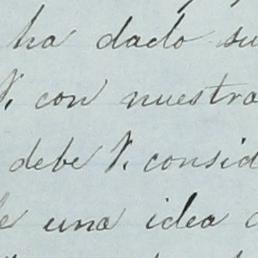 ha dado su
V. con nuestra
debe V. consid
le una idea